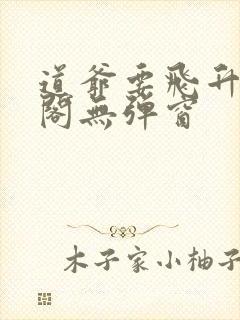 道爷要飛升
閣無彈窗
木子家小柚子